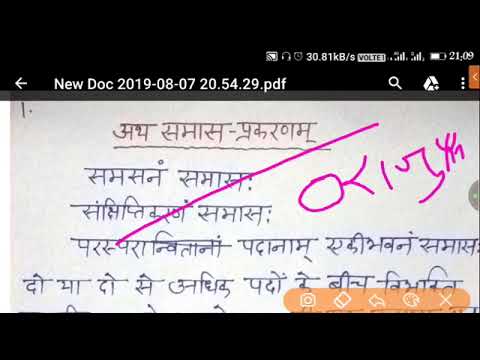 30.81kB/s VOLTE 21:09
New Doc 2019-08-07 20.54.29.pdf
1.
अथ समास-प्रकरणम्
समसनं समासः
संक्षिप्तिकरणं समासः
परस्परान्वितानां पदानाम् एकीभवनं समासः
दो या दो से अधिक पदों के बीच विभक्ति